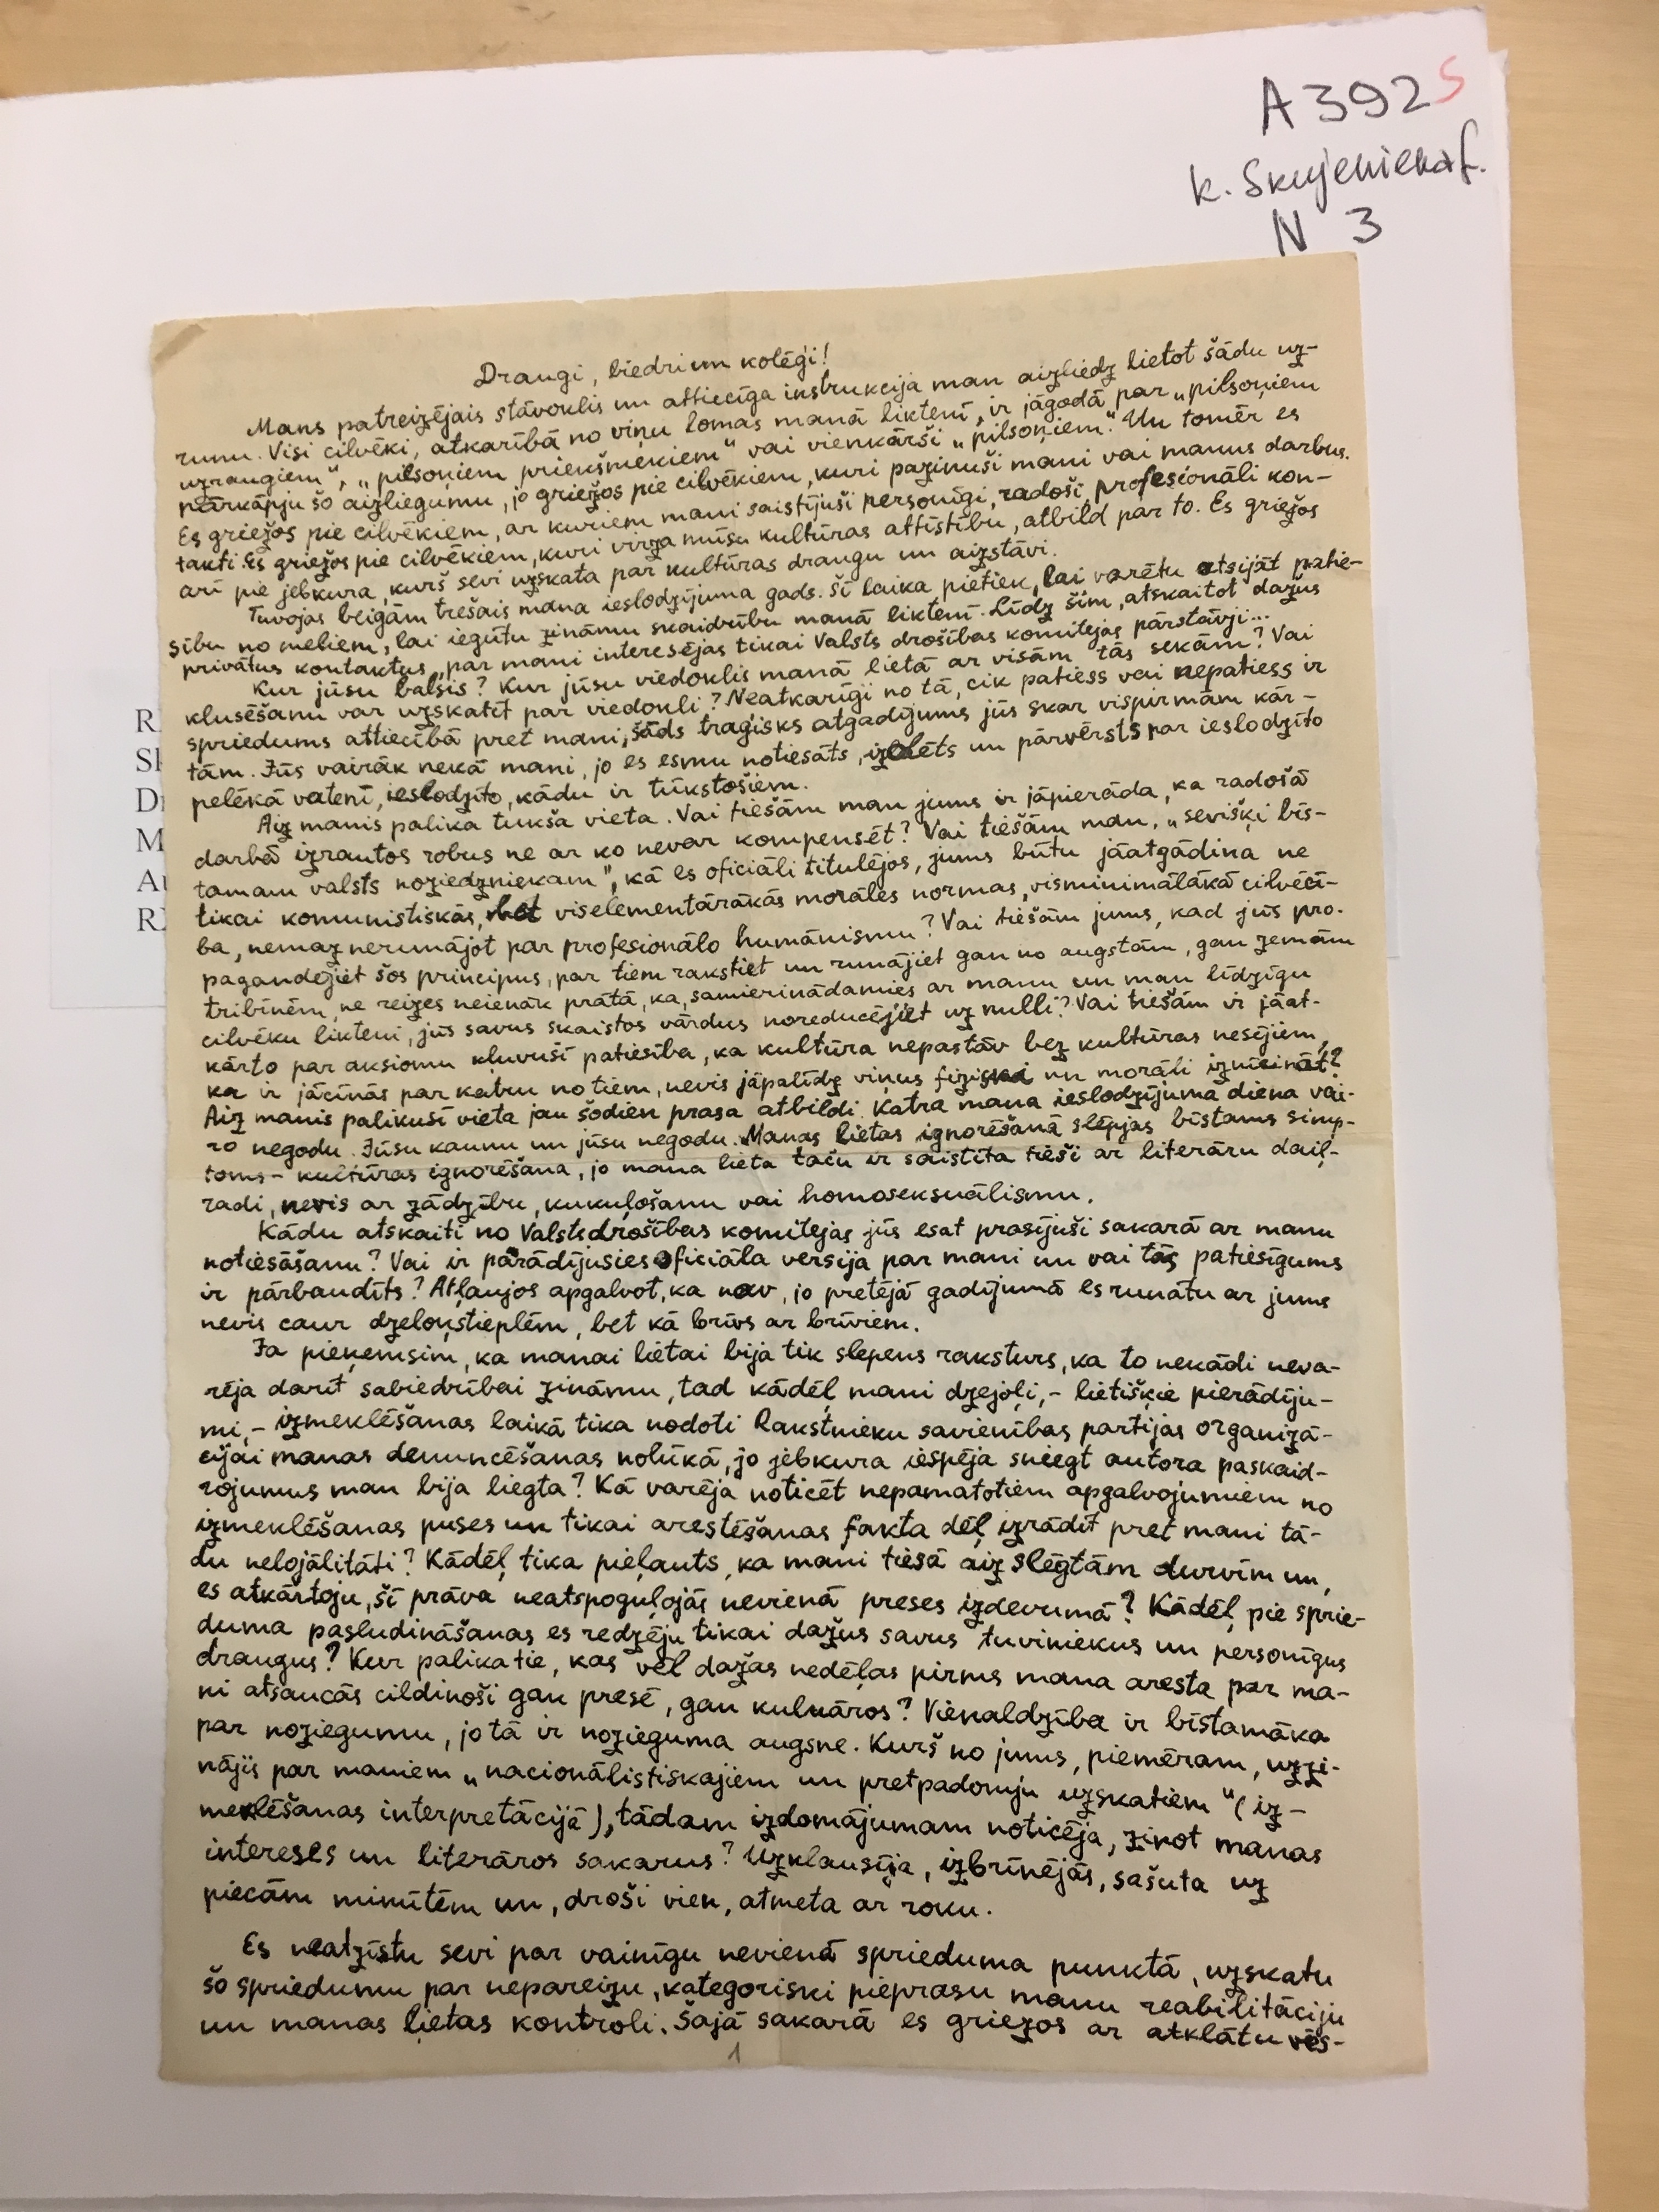 A 392 5
K. Skujenieka f.
N 3
R
Sl
D
M
A
R
Draugi, biedri un kolēģi!
Mans patreizējais stāvoklis un attiecīga instrukcija man aizliedz lietot šādu uz-
runu. Visi cilvēki, atkarībā no viņu lomas manā liktenī, ir jāgodā par „pilsoņiem
uzraugiem“, „pilsoņiem priekšniekiem“ vai vienkārši „pilsoņiem“. Un tomēr es
pārkāpju šo aizliegumu, jo griežos pie cilvēkiem, kuri pazinuši mani vai manus darbus.
Es griežos pie cilvēkiem, ar kuriem mani saistījuši personīgi, radoši, profesionāli kon-
takti. Es griežos pie cilvēkiem, kuri virza mūsu kultūras attīstību, atbild par to. Es griežos
arī pie jebkura, kurš sevi uzskata par kultūras draugu un aizstāvi.
Tuvojas beigām trešais mana ieslodzījuma gads. Šī laika pietiek, lai varētu atsijāt patie-
sību no meliem, lai iegūtu zināmu skaidrību manā liktenī. Līdz šim, atskaitot dažus
privātus kontaktus, par mani interesējas tikai Valsts drošības komitejas pārstāvji...
Kur jūsu balsis? Kur jūsu viedoklis manā lietā ar visām tās sekām? Vai
klusēšanu var uzskatīt par viedokli? Neatkarīgi no tā, cik patiess vai nepatiess ir
spriedums attiecībā pret mani, šāds traģisks atgadījums jūs skar vispirmām kār-
tām. Jūs vairāk nekā mani, jo es esmu notiesāts, izolēts un pārvērsts par ieslodzīto
pelēkā vatenī, ieslodzīto, kādu ir tūkstošiem.
Aiz manis palika tukša vieta. Vai tiešām man jums ir jāpierāda, ka radošā
darbā izrautos robus ne ar ko nevar kompensēt? Vai tiešām man, „sevišķi bīs-
tamam valsts noziedzniekam“, kā es oficiāli titulējos, jums būtu jāatgādina ne
tikai komunistiskās, bet viselementārākās morāles normas, visminimālākā cilvēcī-
ba, nemaz nerunājot par profesionālo humānismu? Vai tiešām jums, kad jūs pro-
pagandējiet šos principus, par tiem rakstiet un runājiet gan no augstām, gan zemām
tribīnēm, ne reizes neienāk prātā, ka, samierinādamies ar manu un man līdzīgu
cilvēku likteni, jūs savus skaistos vārdus noreducējiet uz nulli? Vai tiešām ir jāat-
kārto par aksiomu kļuvusī patiesība, ka kultūra nepastāv bez kultūras nesējiem,
ka ir jācīnās par katru no tiem, nevis jāpalīdz viņus fiziski un morāli iznīcināt?
Aiz manis palikusī vieta jau šodien prasa atbildi. Katra mana ieslodzījuma diena vai-
ro negodu. Jūsu kaunu un jūsu negodu. Manas lietas ignorēšanā slēpjas bīstams simp-
toms – kultūras ignorēšana, jo mana lieta taču ir saistīta tieši ar literāru daiļ-
radi, nevis ar zādzību, kukuļošanu vai homoseksuālismu.
Kādu atskaiti no Valsts drošības komitejas jūs esat prasījuši sakarā ar manu
notiesāšanu? Vai ir parādījusies oficiāla versija par mani un vai tās patiesīgums
ir pārbaudīts? Atļaujos apgalvot, ka nav, jo pretējā gadījumā es runātu ar jums
nevis caur dzeloņstieplēm, bet kā brīvs ar brīviem.
Ja pieņemsim, ka manai lietai bija tik slepens raksturs, ka to nekādi neva-
rēja darīt sabiedrībai zināmu, tad kādēļ mani dzejoļi, – lietišķie pierādīju-
mi, – izmeklēšanas laikā tika nodoti Rakstnieku savienības partijas organizā-
cijai manas denuncēšanas nolūkā, jo jebkura iespēja sniegt autora paskaid-
rojumus man bija liegta? Kā varēja noticēt nepamatotiem apgalvojumiem no
izmeklēšanas puses un tikai arestēšanas fakta dēļ izrādīt pret mani tā-
du nelojālitāti? Kādēļ tika pieļauts, ka mani tiesā aiz slēgtām durvīm un,
es atkārtoju, šī prāva neatspoguļojās nevienā preses izdevumā? Kādēļ pie sprie-
duma pasludināšanas es redzēju tikai dažus savus tuviniekus un personīgus
draugus? Kur palika tie, kas vēl dažas nedēļas pirms mana aresta par ma-
ni atsaucās cildinoši gan presē, gan kuluāros? Vienaldzība ir bīstamāka
par noziegumu, jo tā ir nozieguma augsne. Kurš no jums, piemēram, uzzi-
nājis par maniem „nacionālistiskajiem un pretpadomju uzskatiem“ (iz-
meklēšanas interpretācijā), tādam izdomājumam noticēja, zinot manas
intereses un literāros sakarus? Uzklausīja, izbrīnējās, sašuta uz
piecām minūtēm un, droši vien, atmeta ar roku.
Es neatzīstu sevi par vainīgu nevienā sprieduma punktā, uzskatu
šo spriedumu par nepareizu, kategoriski pieprasu manu reabilitāciju
un manas lietas kontroli. Šajā sakarā es griežos ar atklātu vēs-
1